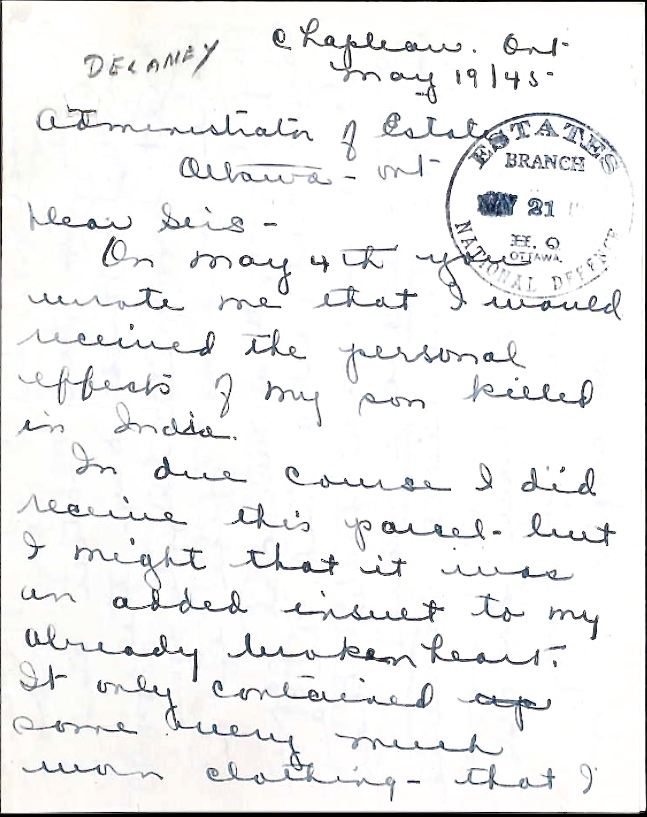 Chapleau. Ont
DELANEY
May 19/45-
Administrator of Estates
Ottawa - ont
ESTATES
BRANCH
MAY 21
H. Q
OTTAWA.
NATIONAL DEFENCE
Dear Sirs -
On May 4th you
wrote me that I would
received the personal
effects of my son killed
in India.
In due course I did
receive this parcel - but
I might that it was
an added insult to my
already broken heart.
It only contained ap
some very much
worn clothing - that I